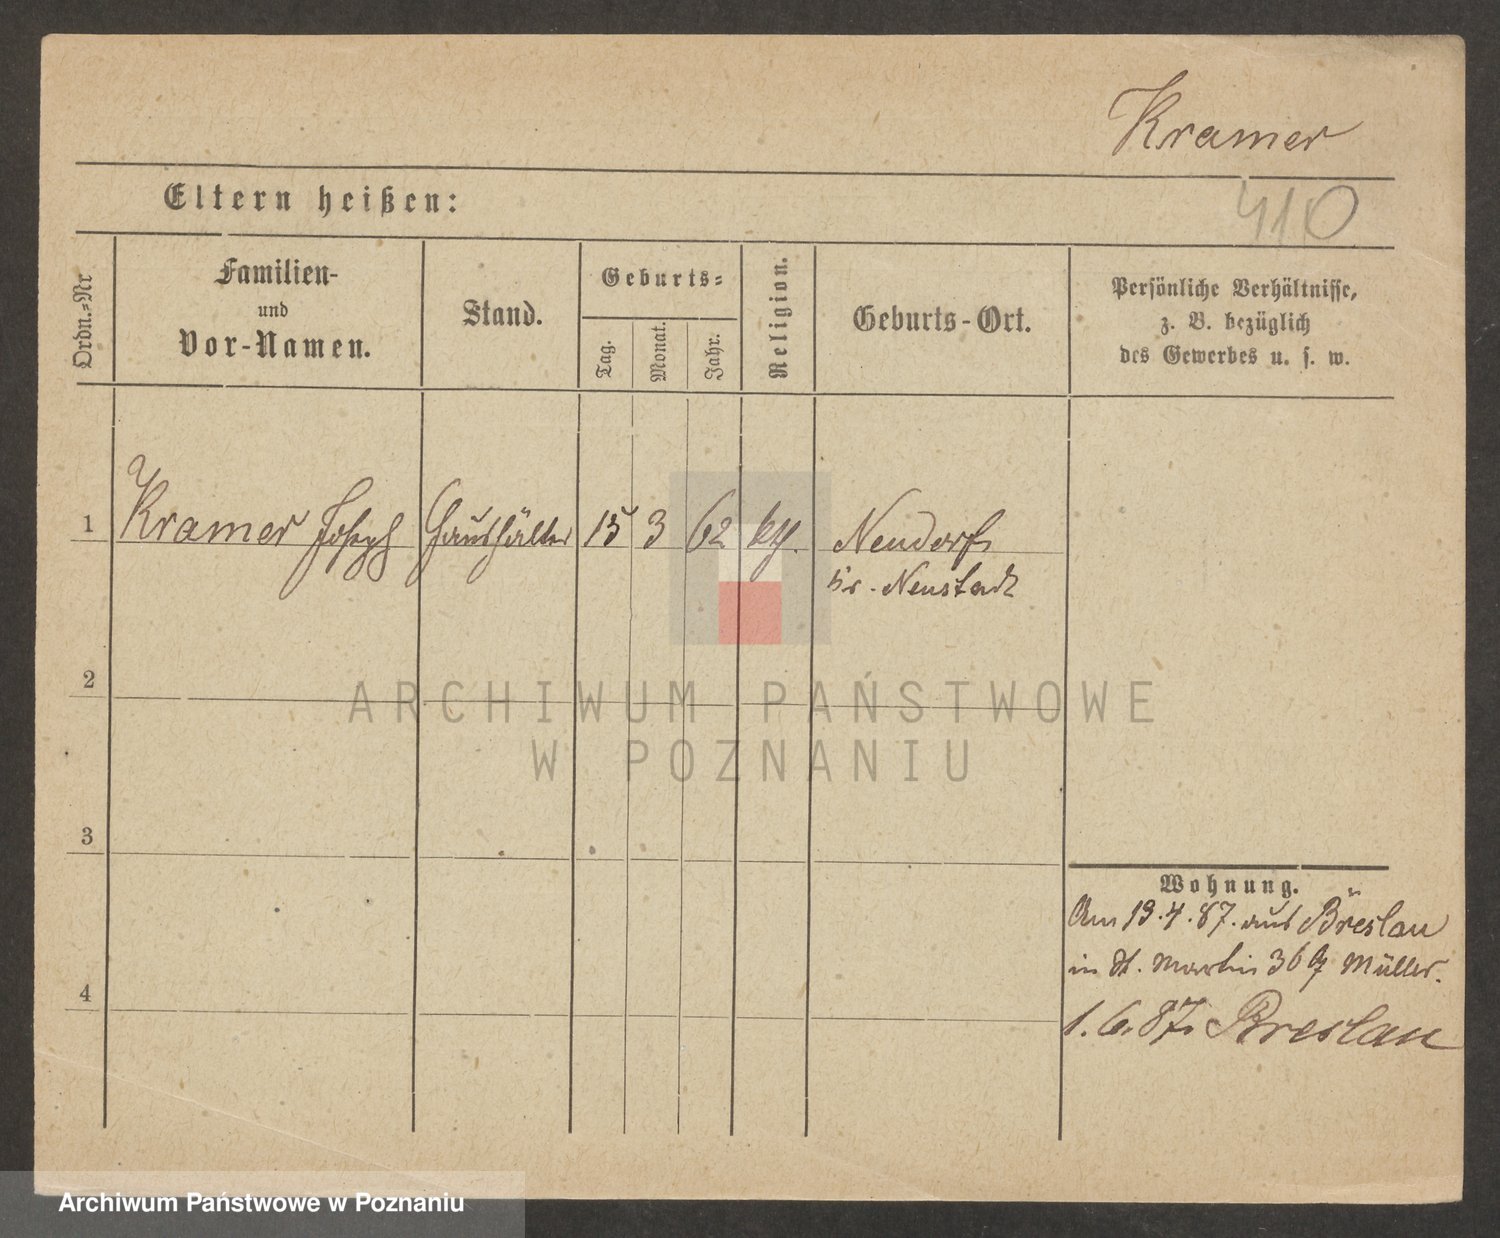 Kramer
Eltern heißen:
410
Ordn.=Nr
Familien-
und
Vor-Namen.
Stand.
Geburts=
Tag.
Monat.
Jahr.
Religion.
Geburts-Ort.
Persönliche Verhältnisse,
z. B. bezüglich
des Gewerbes u. s. w.
1 Kramer Joseph Haushälter 15 3 62 kth. Neudorf
Kr. Neustadt
2
3
4
ARCHIWUM PAŃSTWOWE
W POZNANIU
Wohnung.
Am 13.4.87. aus Breslau
in St. Martin 36 Müller.
1.6.87. Breslau
Archiwum Państwowe w Poznaniu